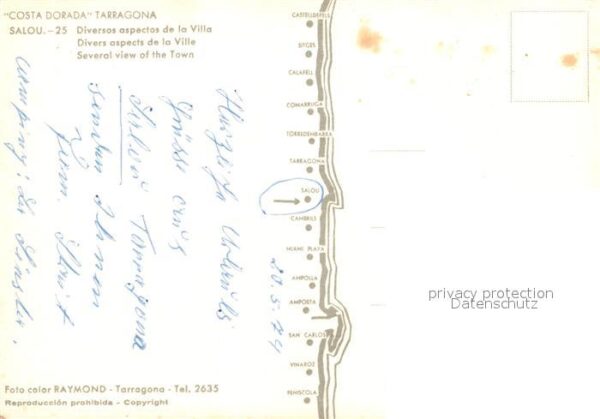 "COSTA DORADA" TARRAGONA
SALOU.–25 Diversos aspectos de la Villa
Divers aspects de la Ville
Several view of the Town
CASTELLDEFELS
SITGES
CALAFELL
COMARRUGA
TORREDEMBARRA
TARRAGONA
SALOU
CAMBRILS
MIAMI PLAYA
AMPOLLA
AMPOSTA
SAN CARLOS
VINAROZ
PEÑISCOLA
20.5.74
Urlaubs
Grüsse aus
Tarragona
senden Ihnen
Fam.
camping: La
privacy protection
Datenschutz
Foto color RAYMOND - Tarragona - Tel. 2635
Reproducción prohibida - Copyright